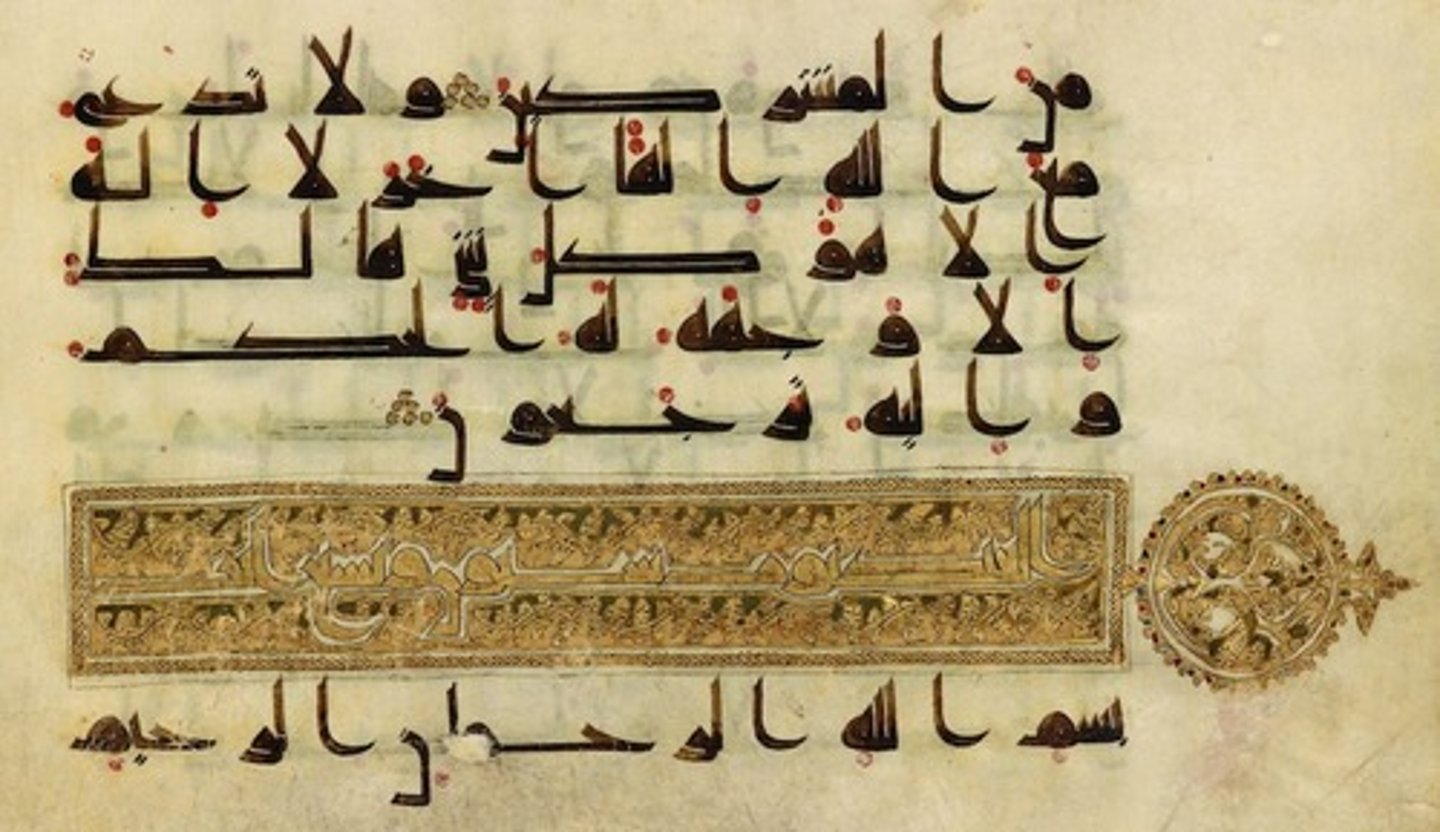 من المشركين ولا تدع
مع الله الها اخر لا اله
الا هو كل شي هالك
الا وجهه له الحكم
واليه ترجعون
العنكبوت ستون وتسع
بسم الله الرحمن الرحيم